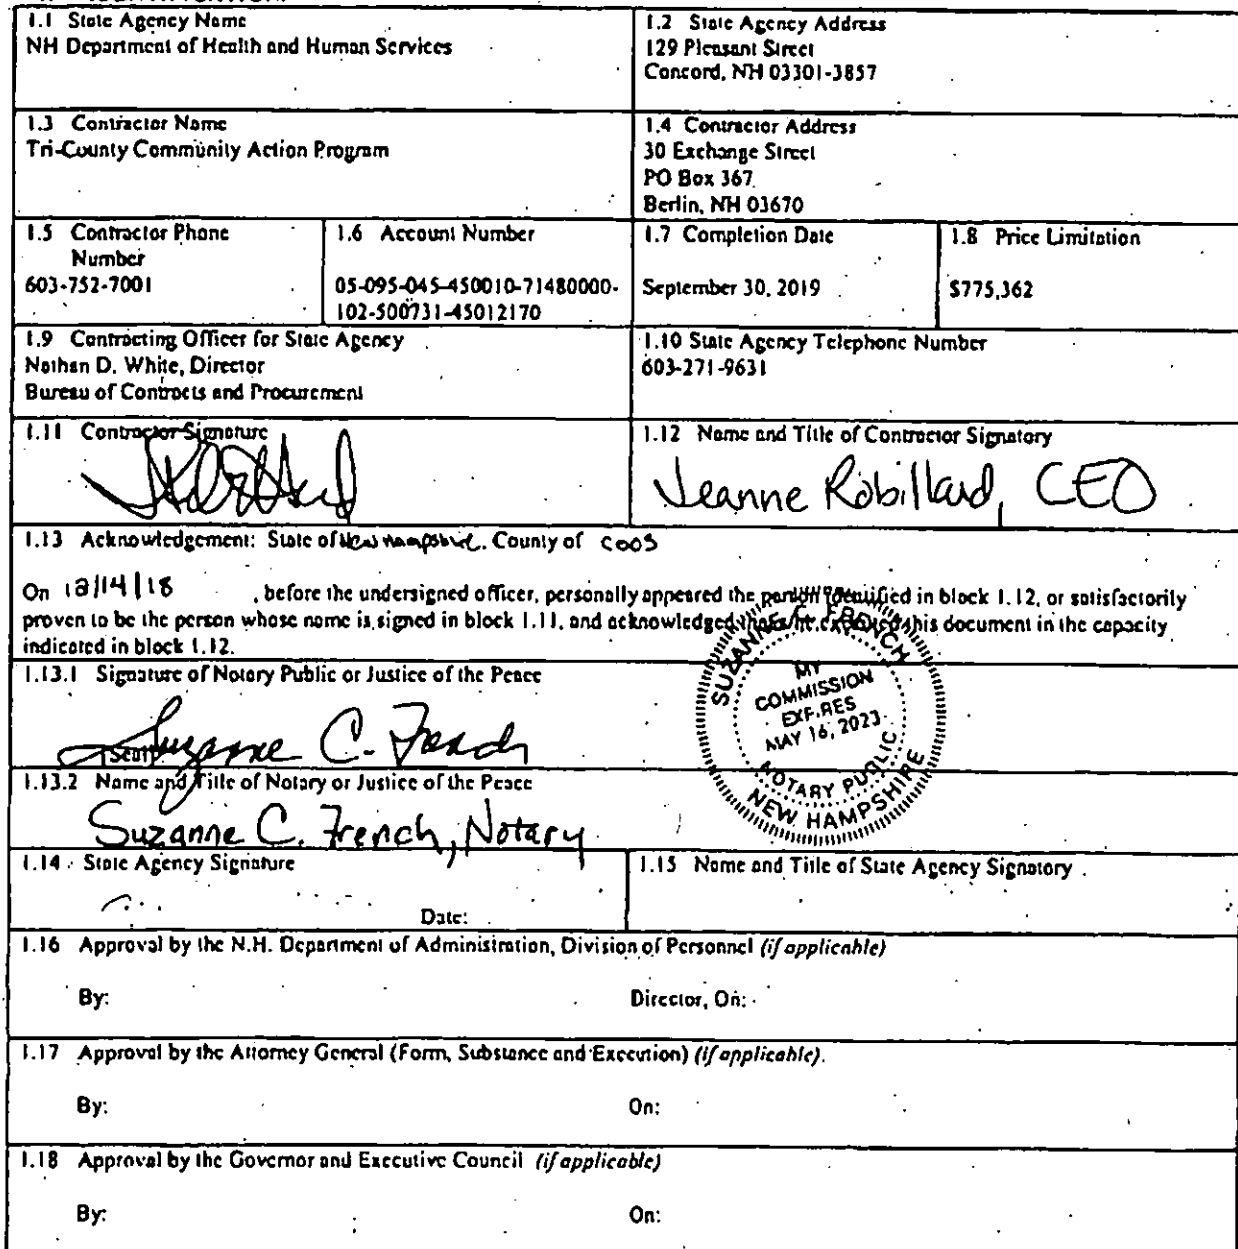 1.1 State Agency Name
NH Department of Health and Human Services
1.2 State Agency Address
129 Pleasant Street
Concord, NH 03301-3857
1.3 Contractor Name
Tri-County Community Action Program
1.4 Contractor Address
30 Exchange Street
PO Box 367
Berlin, NH 03670
1.5 Contractor Phone
Number
603-752-7001
1.6 Account Number
05-095-045-450010-71480000-
102-500731-45012170
1.7 Completion Date
September 30, 2019
1.8 Price Limitation
$775,362
1.9 Contracting Officer for State Agency
Nathan D. White, Director
Bureau of Contracts and Procurement
1.10 State Agency Telephone Number
603-271-9631
1.11 Contractor Signature
1.12 Name and Title of Contractor Signatory
Jeanne Robillard, CEO
1.13 Acknowledgement: State of New Hampshire, County of Coos
On 12/14/18 , before the undersigned officer, personally appeared the person identified in block 1.12, or satisfactorily
proven to be the person whose name is signed in block 1.11, and acknowledged that s/he executed this document in the capacity
indicated in block 1.12.
1.13.1 Signature of Notary Public or Justice of the Peace
Suzanne C. French
[Seal]
SUZANNE C. FRENCH
MY
COMMISSION
EXPIRES
MAY 16, 2023
NOTARY PUBLIC
NEW HAMPSHIRE
1.13.2 Name and Title of Notary or Justice of the Peace
Suzanne C. French, Notary
1.14 State Agency Signature
Date:
1.15 Name and Title of State Agency Signatory
1.16 Approval by the N.H. Department of Administration, Division of Personnel (if applicable)
By:
Director, On:
1.17 Approval by the Attorney General (Form, Substance and Execution) (if applicable)
By:
On:
1.18 Approval by the Governor and Executive Council (if applicable)
By:
On: